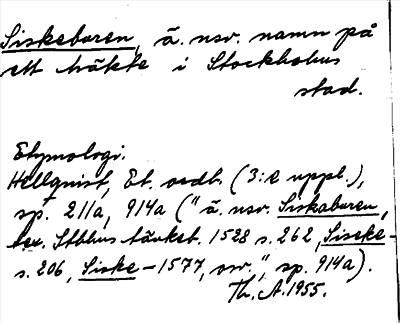 Siskeburen, ä. nsv. namn på
ett träkte i Stockholms
stad.
Etymologi.
Hellquist, Et. ordb. (3:e uppl.),
sp. 211a, 914a ("ä. nsv. Siskaburen,
tex. Stblms tänkeb. 1528 s. 262, Siseke-
s. 206, Siske- 1577, osv.", sp. 914a).
Th. A. 1955.